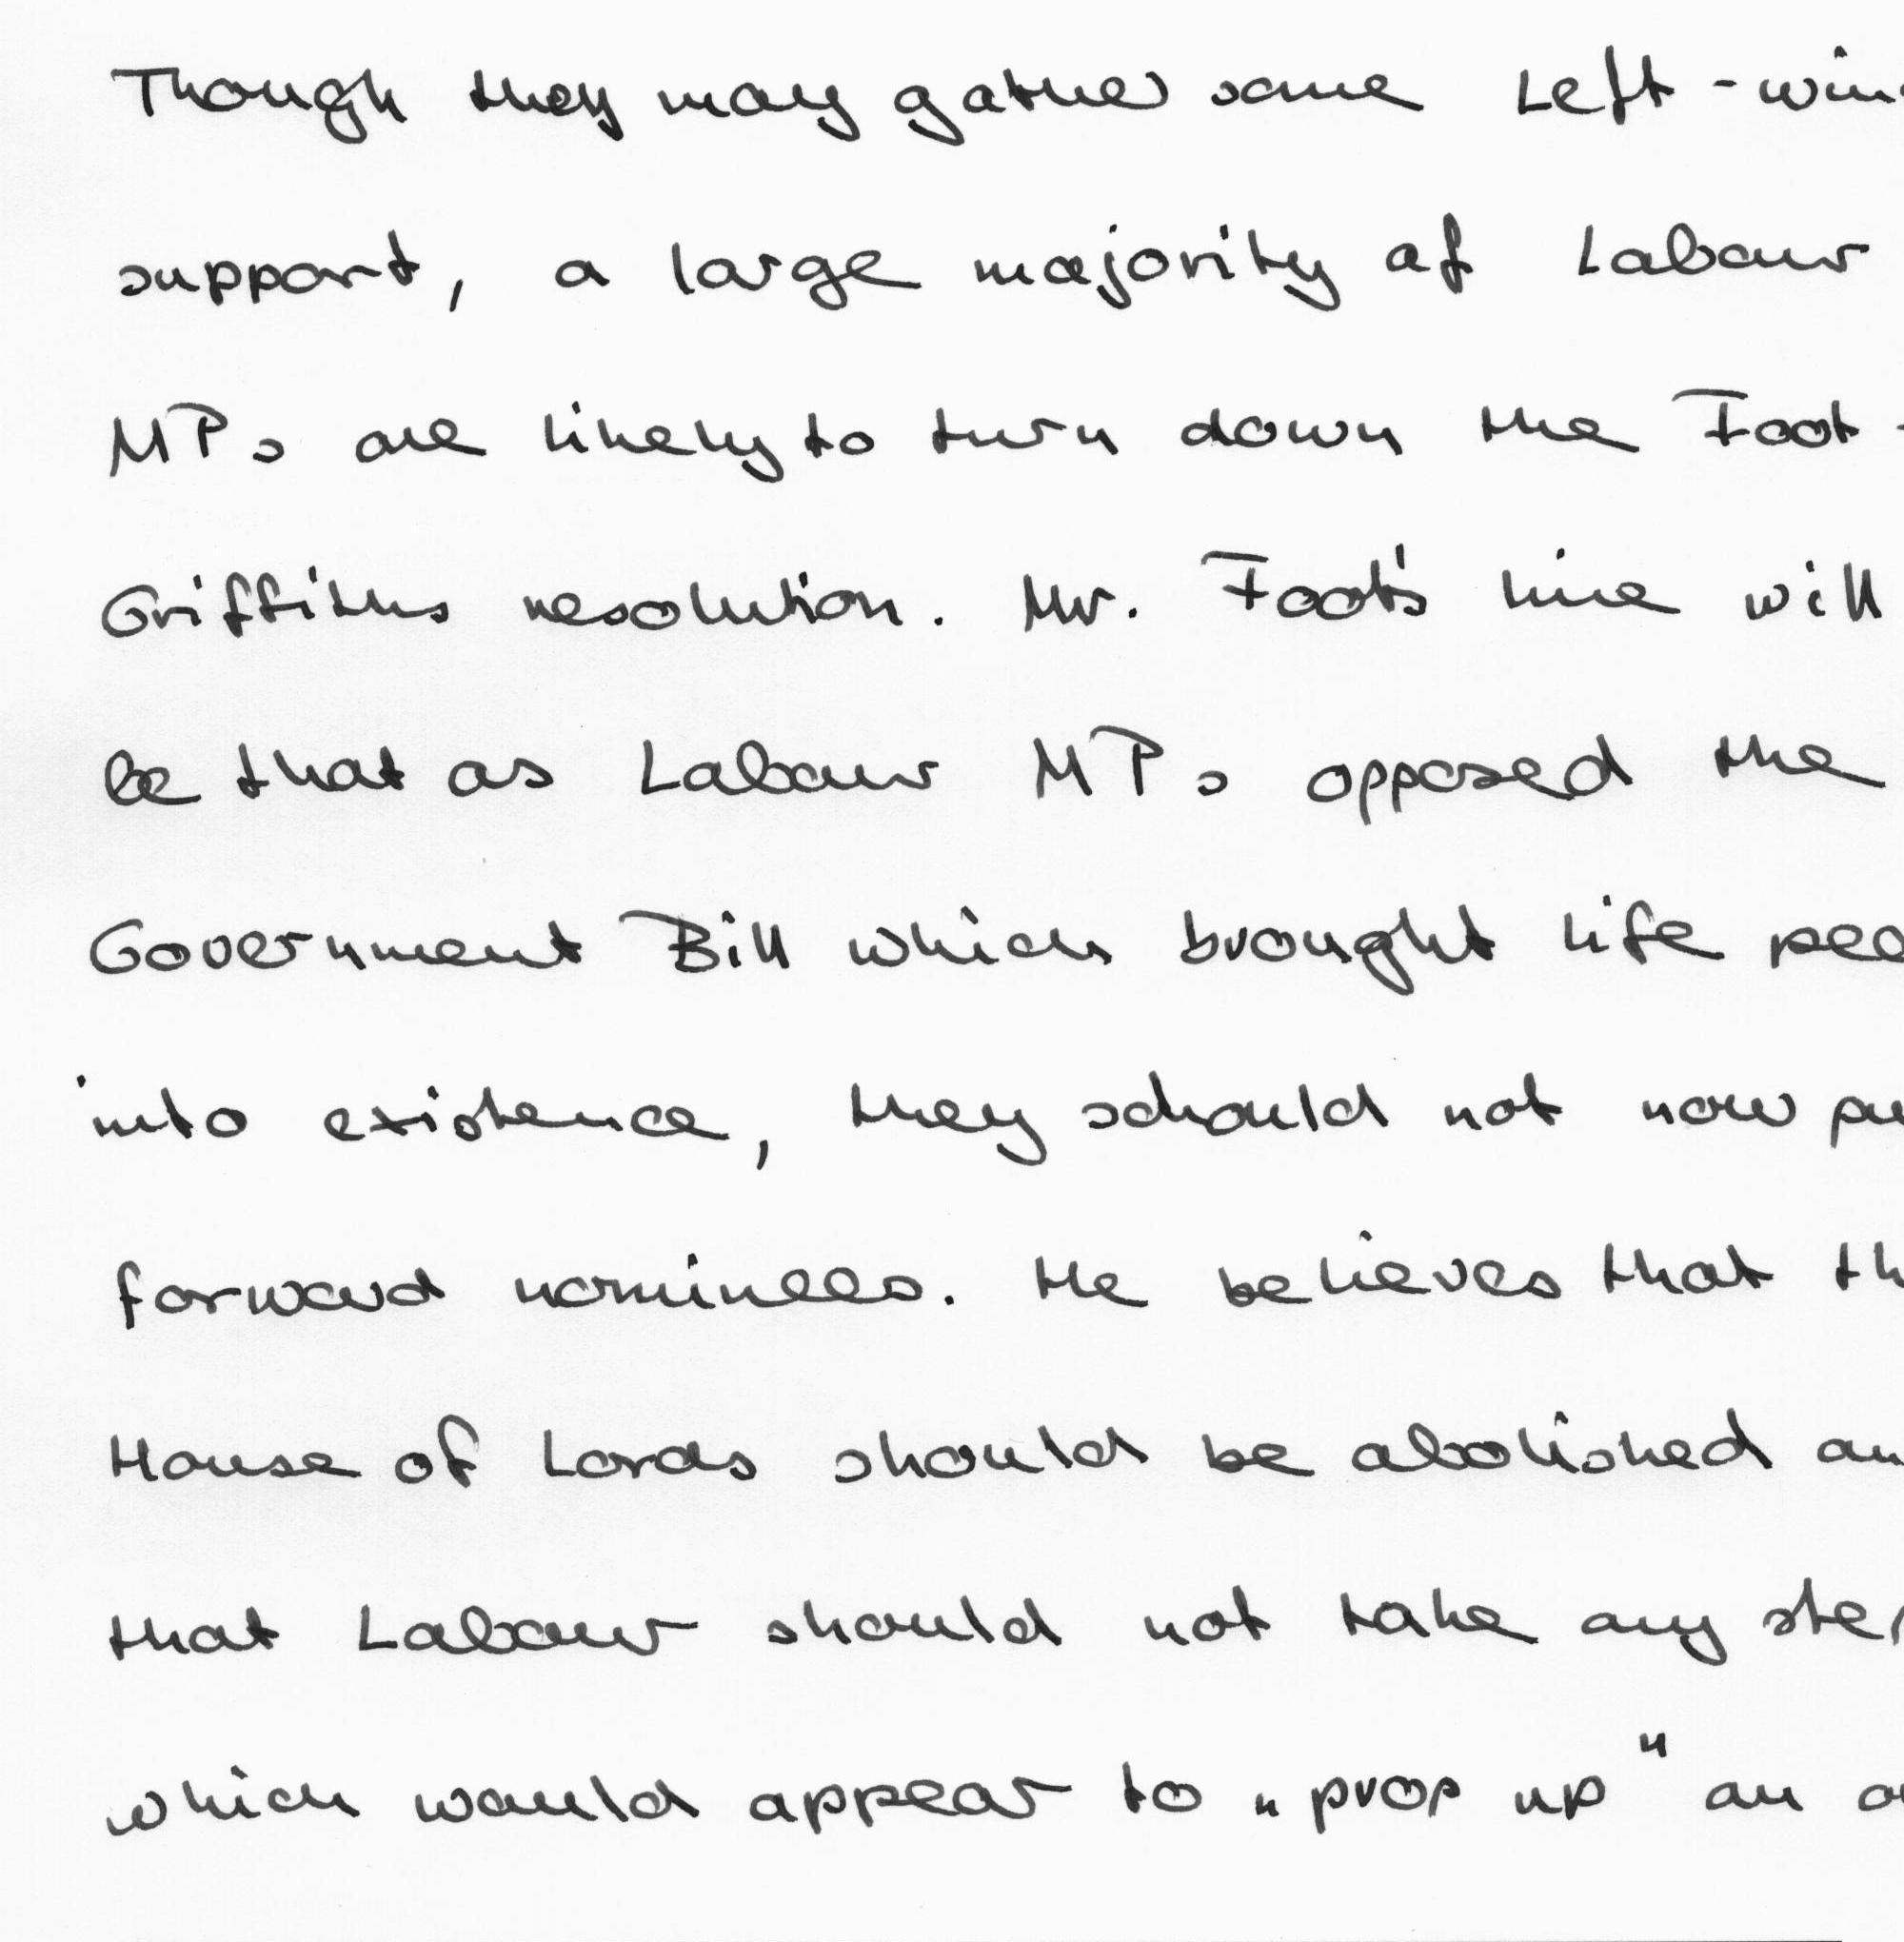 Though they may gather some Left-win
support, a large majority of Labour
MPs are likely to turn down the Foot-
Griffiths resolution. Mr. Foot's line will
be that as Labour MPs opposed the
Government Bill which brought life pee
into existence, they should not now pu
forward nominees. He believes that th
House of Lords should be abolished an
that Labour should not take any step
which would appear to „prop up" an o